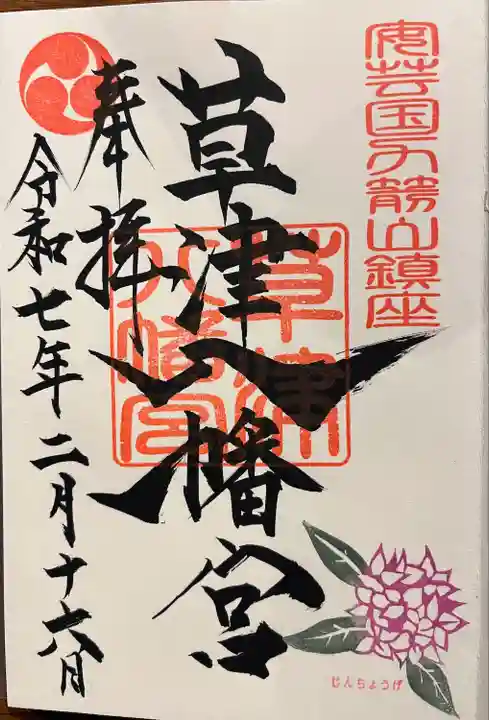 安芸国力静山鎮座
草津八幡宮
奉拝
令和七年二月十六日
草津八幡宮
じんちょうげ